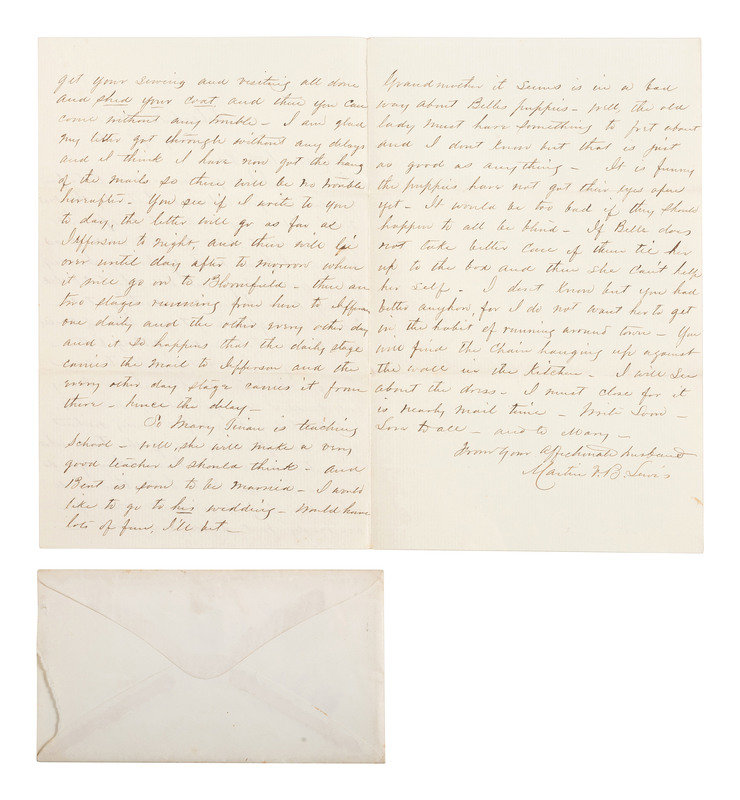 get your sewing and visiting all done
and shed your coat, and then you can
come without any trouble – I am glad
my letter got through without any delays
and I think I have now got the hang
of the mails so there will be no trouble
hereafter – You see if I write to you
to day, the letter will go as far as
Jefferson to night, and then will lie
over until day after to morrow when
it will go on to Bloomfield – there are
two stages running from here to Jefferson
one daily and the other every other day
and it so happens that the daily stage
carries the mail to Jefferson and the
every other day stage carries it from
there – hence the delay –
So Mary is teaching
School – well, she will make a very
good teacher I should think – and
Bent is soon to be married – I would
like to go to his wedding – would have
lots of fun, I'll bet –
Grandmother it seems is in a bad
way about Belles puppies – well, the old
lady must have something to fret about
and I dont know but that is just
as good as anything – It is funny
the puppies have not got their eyes open
yet – It would be too bad if they should
happen to all be blind – If Belle does
not take better care of them tie her
up to the box and then she cant help
her self – I dont know but you had
better anyhow, for I do not want her to get
in the habit of running around town – You
will find the Chain hanging up against
the wall in the Kitchen – I will see
about the dress – I must close for it
is nearly mail time – Write Soon –
Love to all – and to Mary –
From Your Affectionate husband
Martin V. B. Lewis